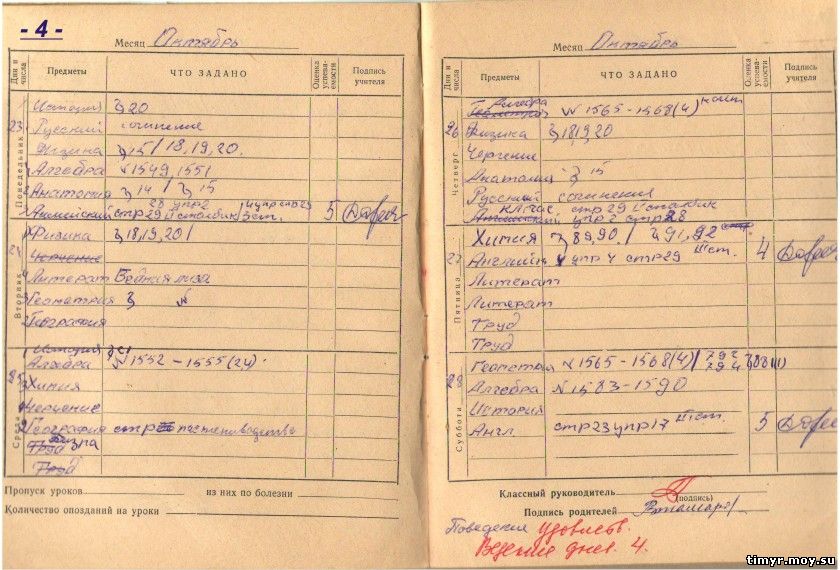 - 4 -
Месяц Октябрь
Дни и числа Предметы ЧТО ЗАДАНО Оценка успеваемости Подпись учителя
Понедельник 23
История § 20
Русский сочинение
Физика § 15 / 18, 19, 20.
Алгебра № 1549, 1551
Анатомия § 14 / § 15
Английский стр 29 II столбик 28 упр2 3 ст. 5
Вторник 24
Физика § 18, 19, 20 /
Черчение
Литерат Бедная лиза
Геометрия § №
География
Среда 25
История
Алгебра № 1552 - 1555 (2 ч)
Химия
Черчение
География стр растениеводство
Труд Физ-ра
Труд
Пропуск уроков из них по болезни
Количество опозданий на уроки
Месяц Октябрь
Дни и числа Предметы ЧТО ЗАДАНО Оценка успеваемости Подпись учителя
Четверг 26
Геометрия Алгебра № 1565 - 1568 (4)
Физика § 18, 19, 20
Черчение
Анатомия § 15
Русский сочинение
стр 29 II столбик
Английский упр 2 стр 28
Пятница 27
Химия § 89, 90 / § 91, 92
Английск упр 4 стр 29 III ст. 4
Литерат
Литерат
Труд
Труд
Суббота 28
Геометрия № 1565 - 1568 (4) / 292 294
Алгебра № 1583 - 1590
История
Англ стр 23 упр 17 III ст. 5
Классный руководитель
(подпись)
Подпись родителей
Поведение удовлетв.
Ведение днев. 4.
timyr.moy.su